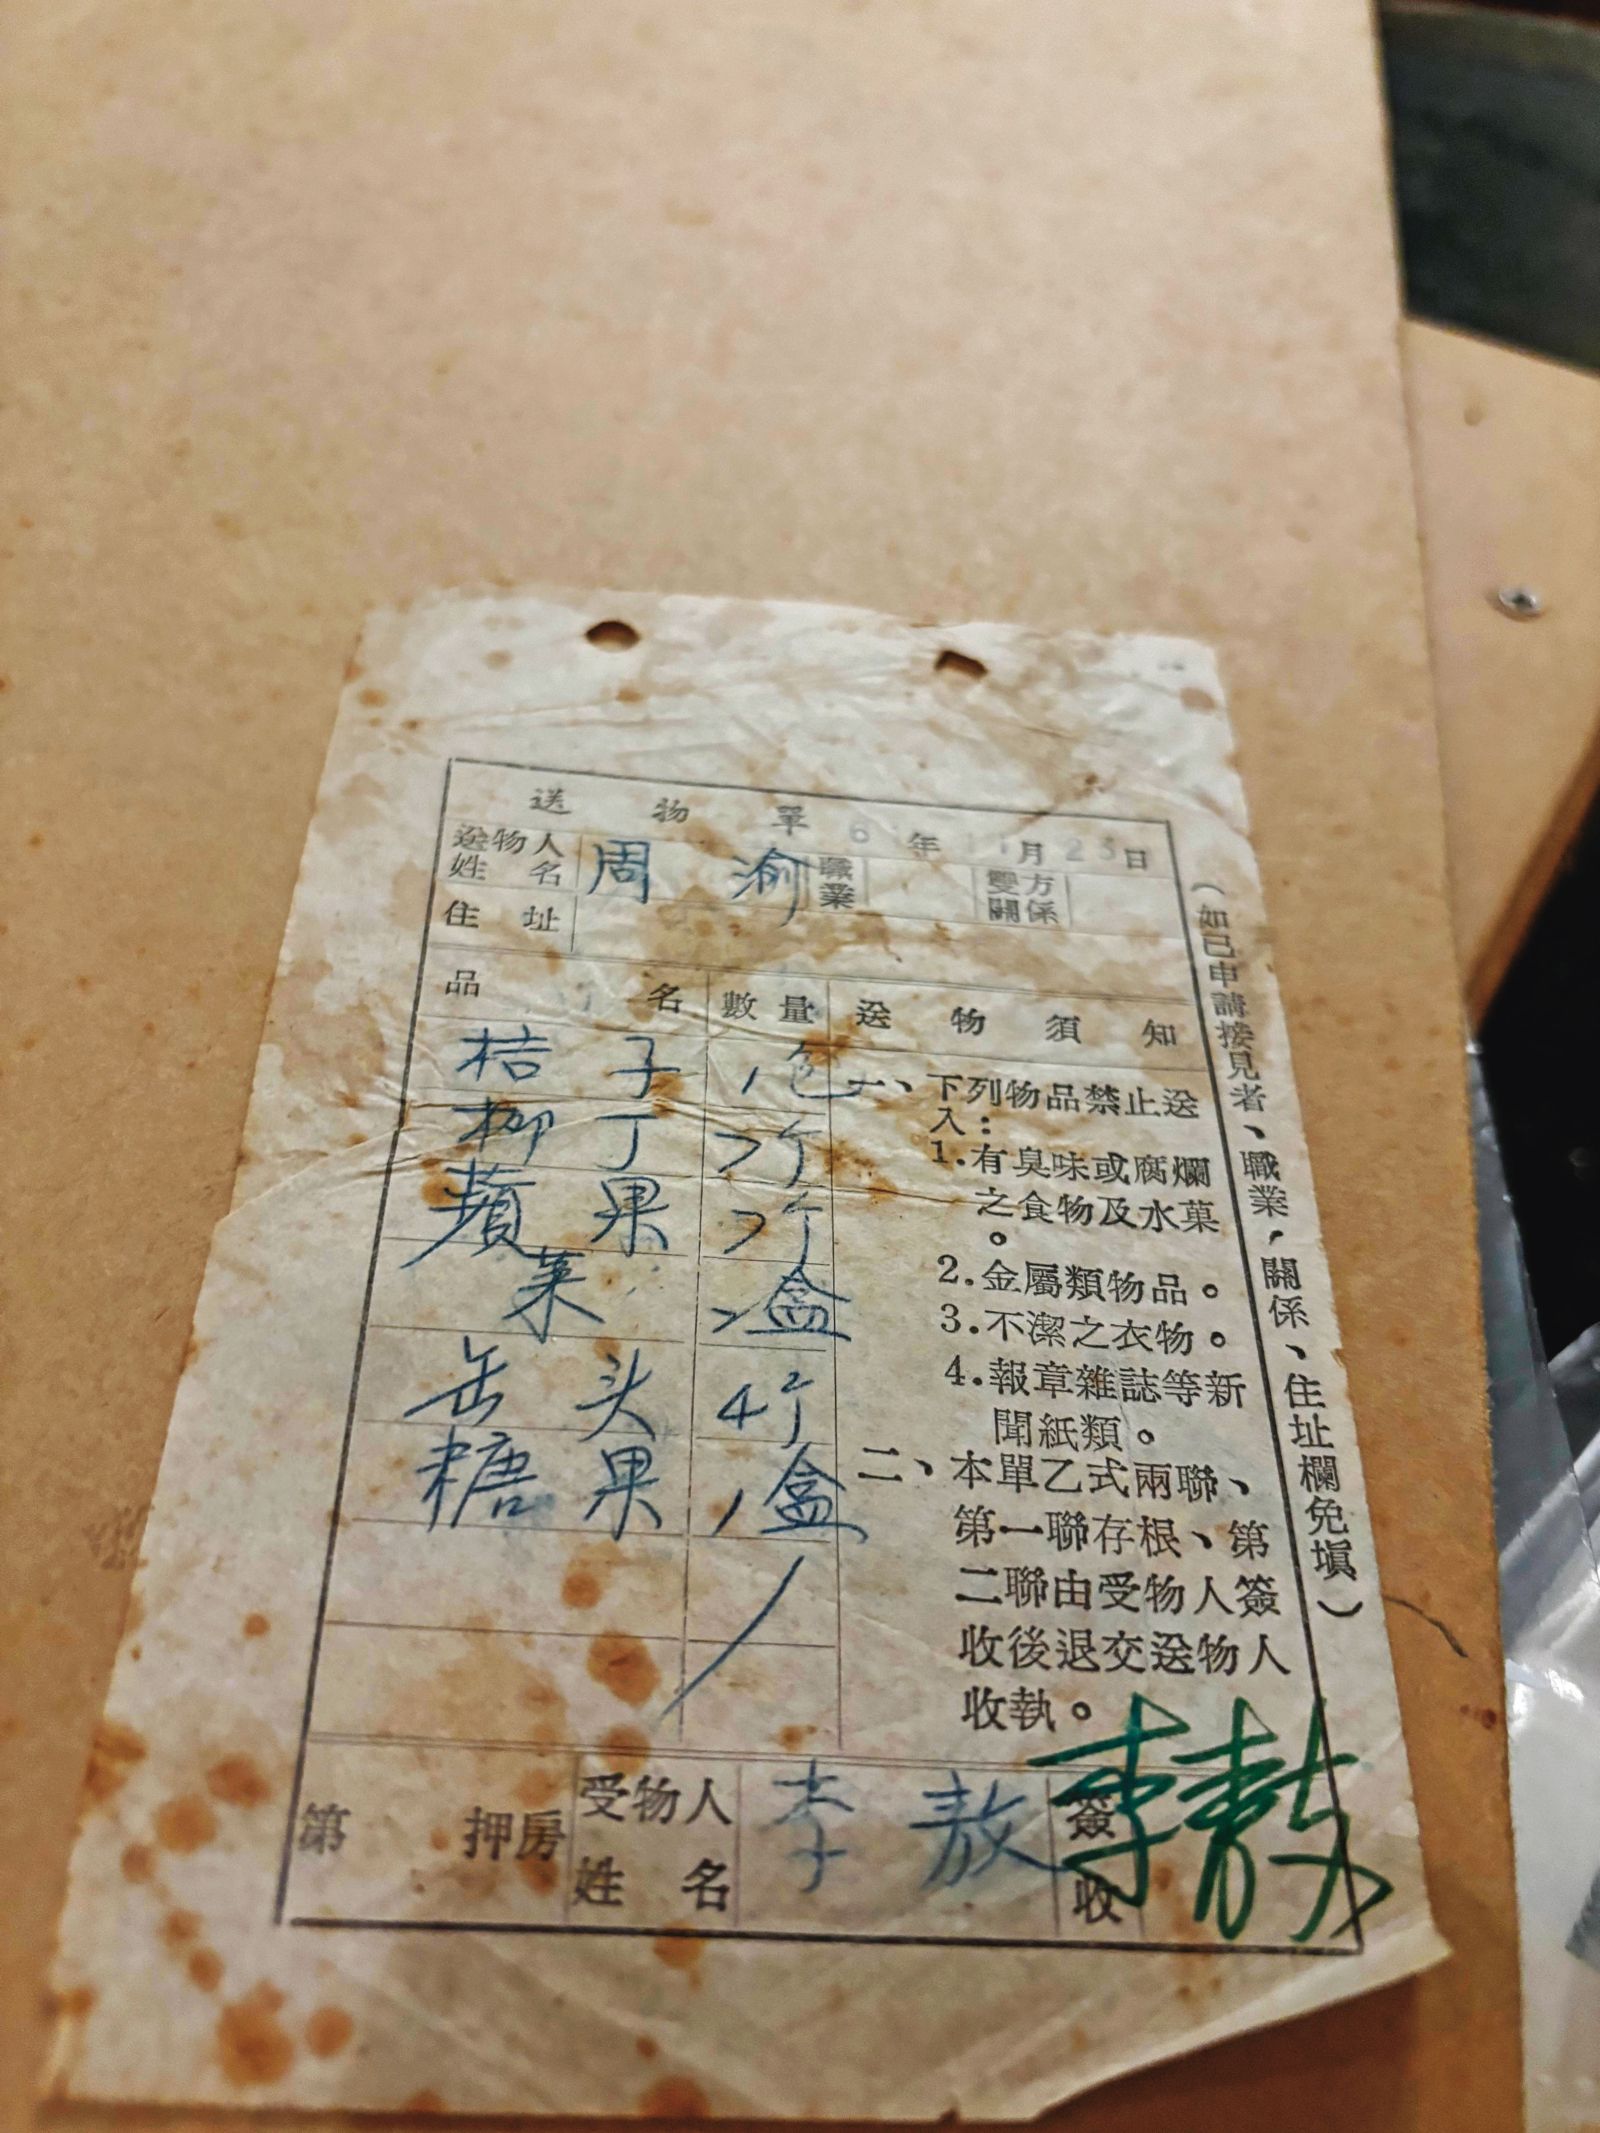 送物單 6 年 11月25日
送物人姓名 周渝 職業 雙方關係
住址
品名 數量 送物須知
桔子 1包
柳丁 2个
蘋果 2个
菜 2盒
缶头 4个
糖果 1盒
一、下列物品禁止送
入：
1.有臭味或腐爛
之食物及水菓
。
2.金屬類物品。
3.不潔之衣物。
4.報章雜誌等新
聞紙類。
二、本單乙式兩聯、
第一聯存根、第
二聯由受物人簽
收後退交送物人
收執。
第 押房 受物人姓名 李敖 簽收 李敖
（如已申請接見者、職業，關係、住址欄免塡）